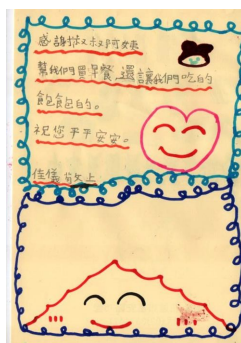 感謝叔叔阿姨
幫我們買早餐 還讓我們吃的
飽飽的。
祝您平平安安。
佳儀 敬上